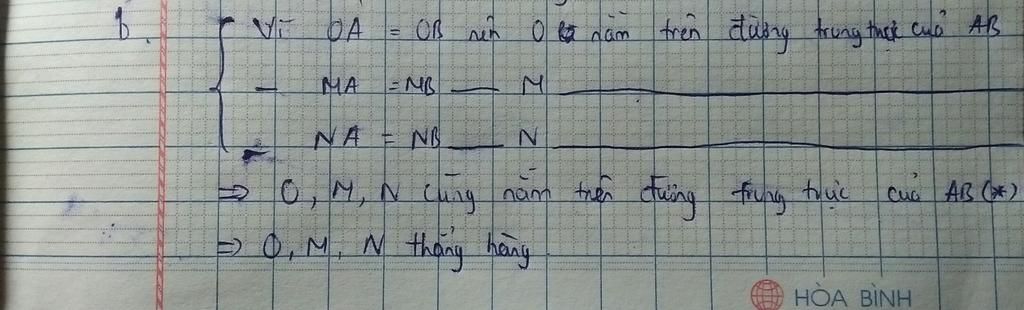 b. Vì OA = OB nên O nằm trên đường trung trực của AB
— MA = MB — M —
— NA = NB — N —
=> O, M, N cùng nằm trên đường trung trực của AB (*)
=> O, M, N thẳng hàng
HÒA BÌNH